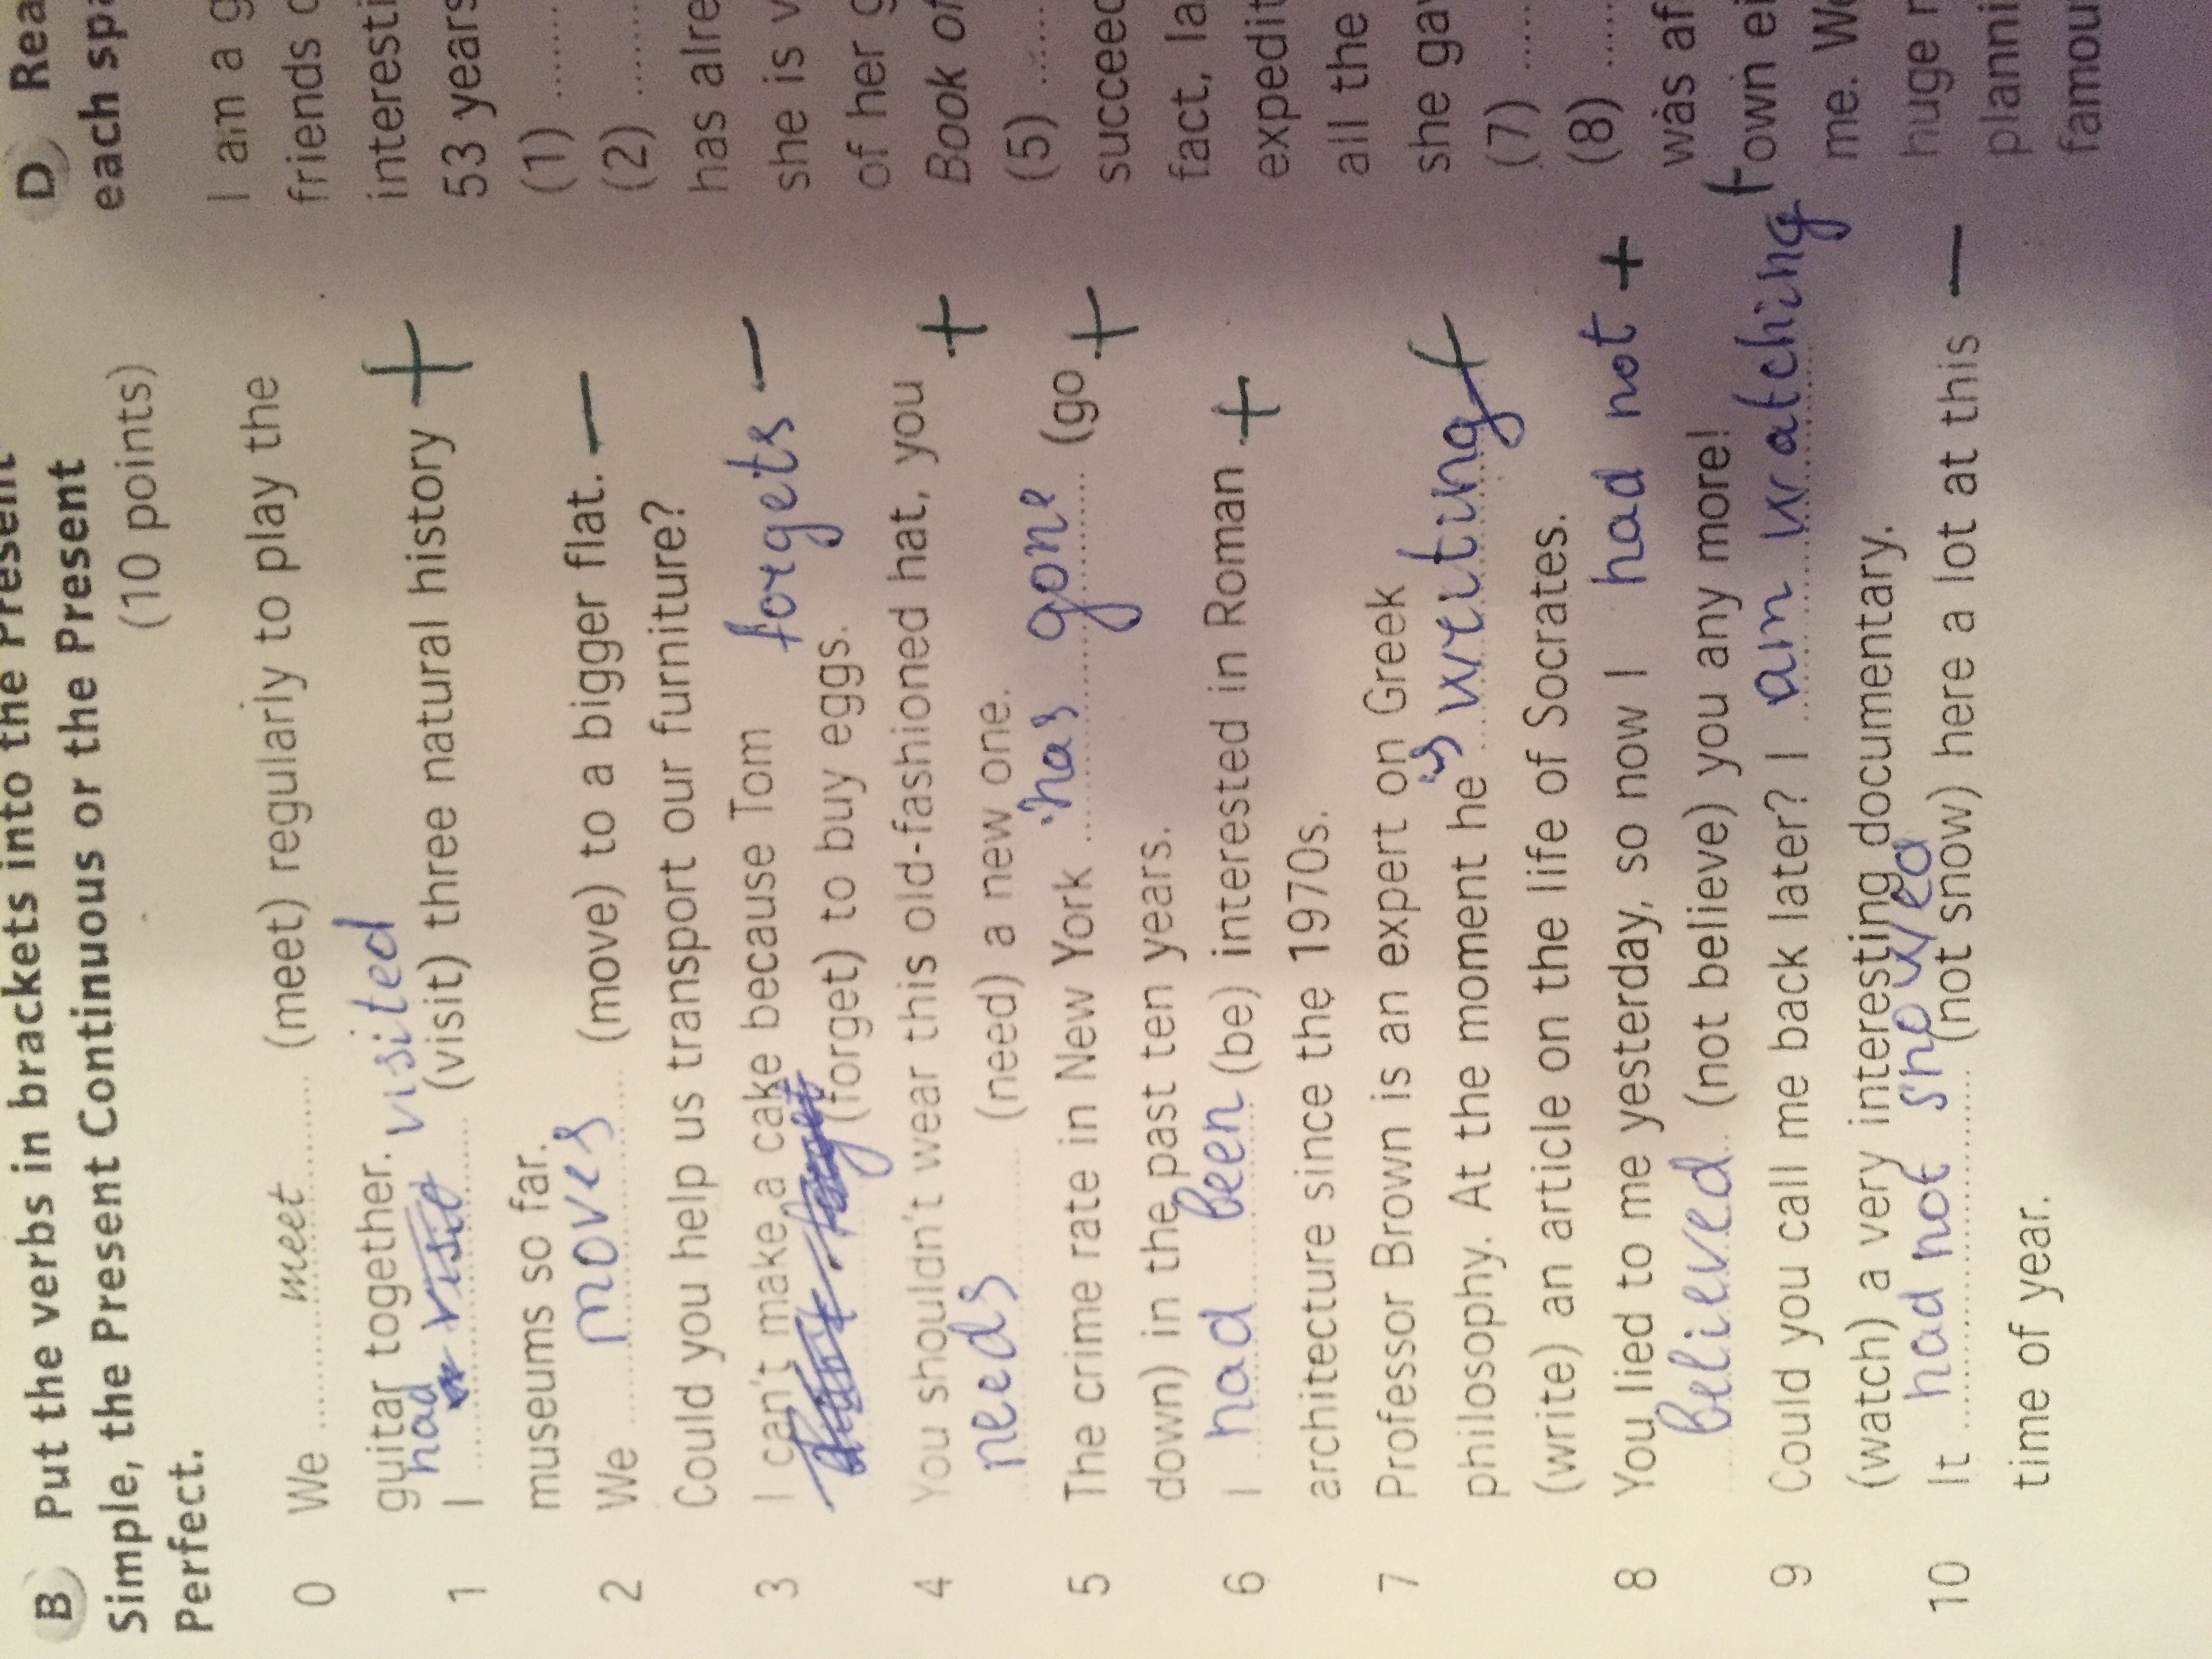 B Put the verbs in brackets into the Present
Simple, the Present Continuous or the Present
Perfect. (10 points)
0 We meet (meet) regularly to play the
guitar together.
1 I had visited (visit) three natural history +
museums so far.
2 We moves (move) to a bigger flat. –
Could you help us transport our furniture?
3 I can't make a cake because Tom forgets –
(forget) to buy eggs.
4 You shouldn't wear this old-fashioned hat, you +
needs (need) a new one.
5 The crime rate in New York has gone (go +
down) in the past ten years.
6 I had been (be) interested in Roman +
architecture since the 1970s.
7 Professor Brown is an expert on Greek
philosophy. At the moment he is writing +
(write) an article on the life of Socrates.
8 You lied to me yesterday, so now I had not +
believed (not believe) you any more!
9 Could you call me back later? I am watching +
(watch) a very interesting documentary.
10 It had not snowed (not snow) here a lot at this –
time of year.
D
each
I am a
friends
53 years
(1)
(2)
has
she is
of her
Book of
(5)
fact,
all the
she
(7)
(8)
was
own
me.
huge